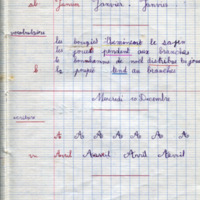 ab Janvier Janvier Janvier
vocabulaire
les bougies le sapin
les jouets pendent aux branches
le bonhomme de noël distribue les joue
b la poupée tend au branches
Mercredi 10 Décembre
écriture
A A A A A A A
Avril Avril Avril Avril